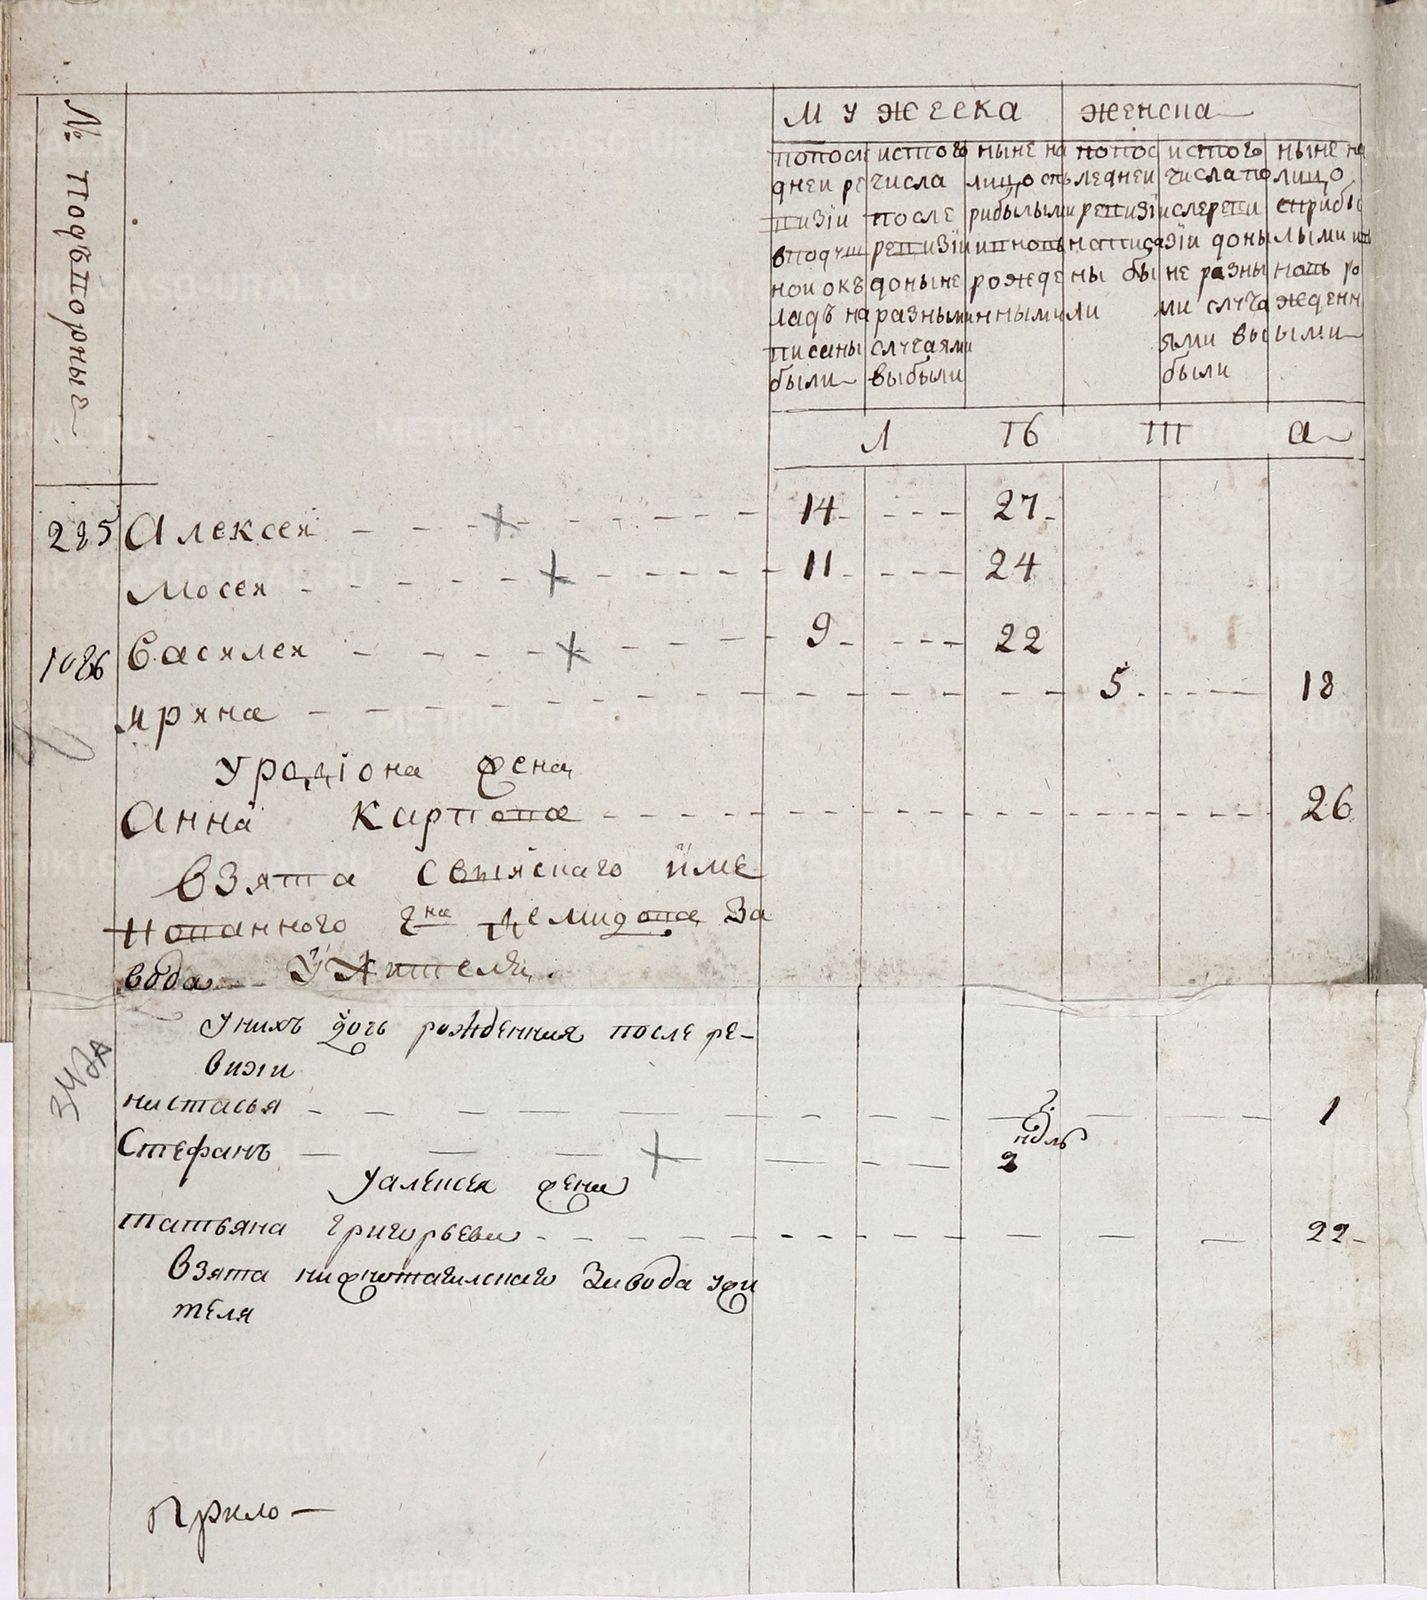 № подворные
мужеска женска
попослѣдней ревизiи вподушной окладъ написаны были
истого числа после ревизiи доныне разными случаями выбыли
ныне налицо сприбылыми ивновь рожденными
попоследней ревизiи написаны были
истого числа после ревизiи доныне разными случаями выбыли
ныне налицо сприбылыми иновь рожденными
л ѣ т а
285 Алексей 14 27
Мосей 11 24
1086 Василей 9 22
ирина 5 18
Урадиона жена
Анна Карпова 26
взята Свыйскаго име
нованного гна Демидова За
вода Ужителя
Унихъ дочь рожденная после ре-
визiи
настасья 1
Стефанъ 2 ндль
Уалексея жена
татьяна григорьева 22
Взята нижнотагилскаго Завода ужи
теля
3142А
Прило
METRIKI.GASO-URAL.RU